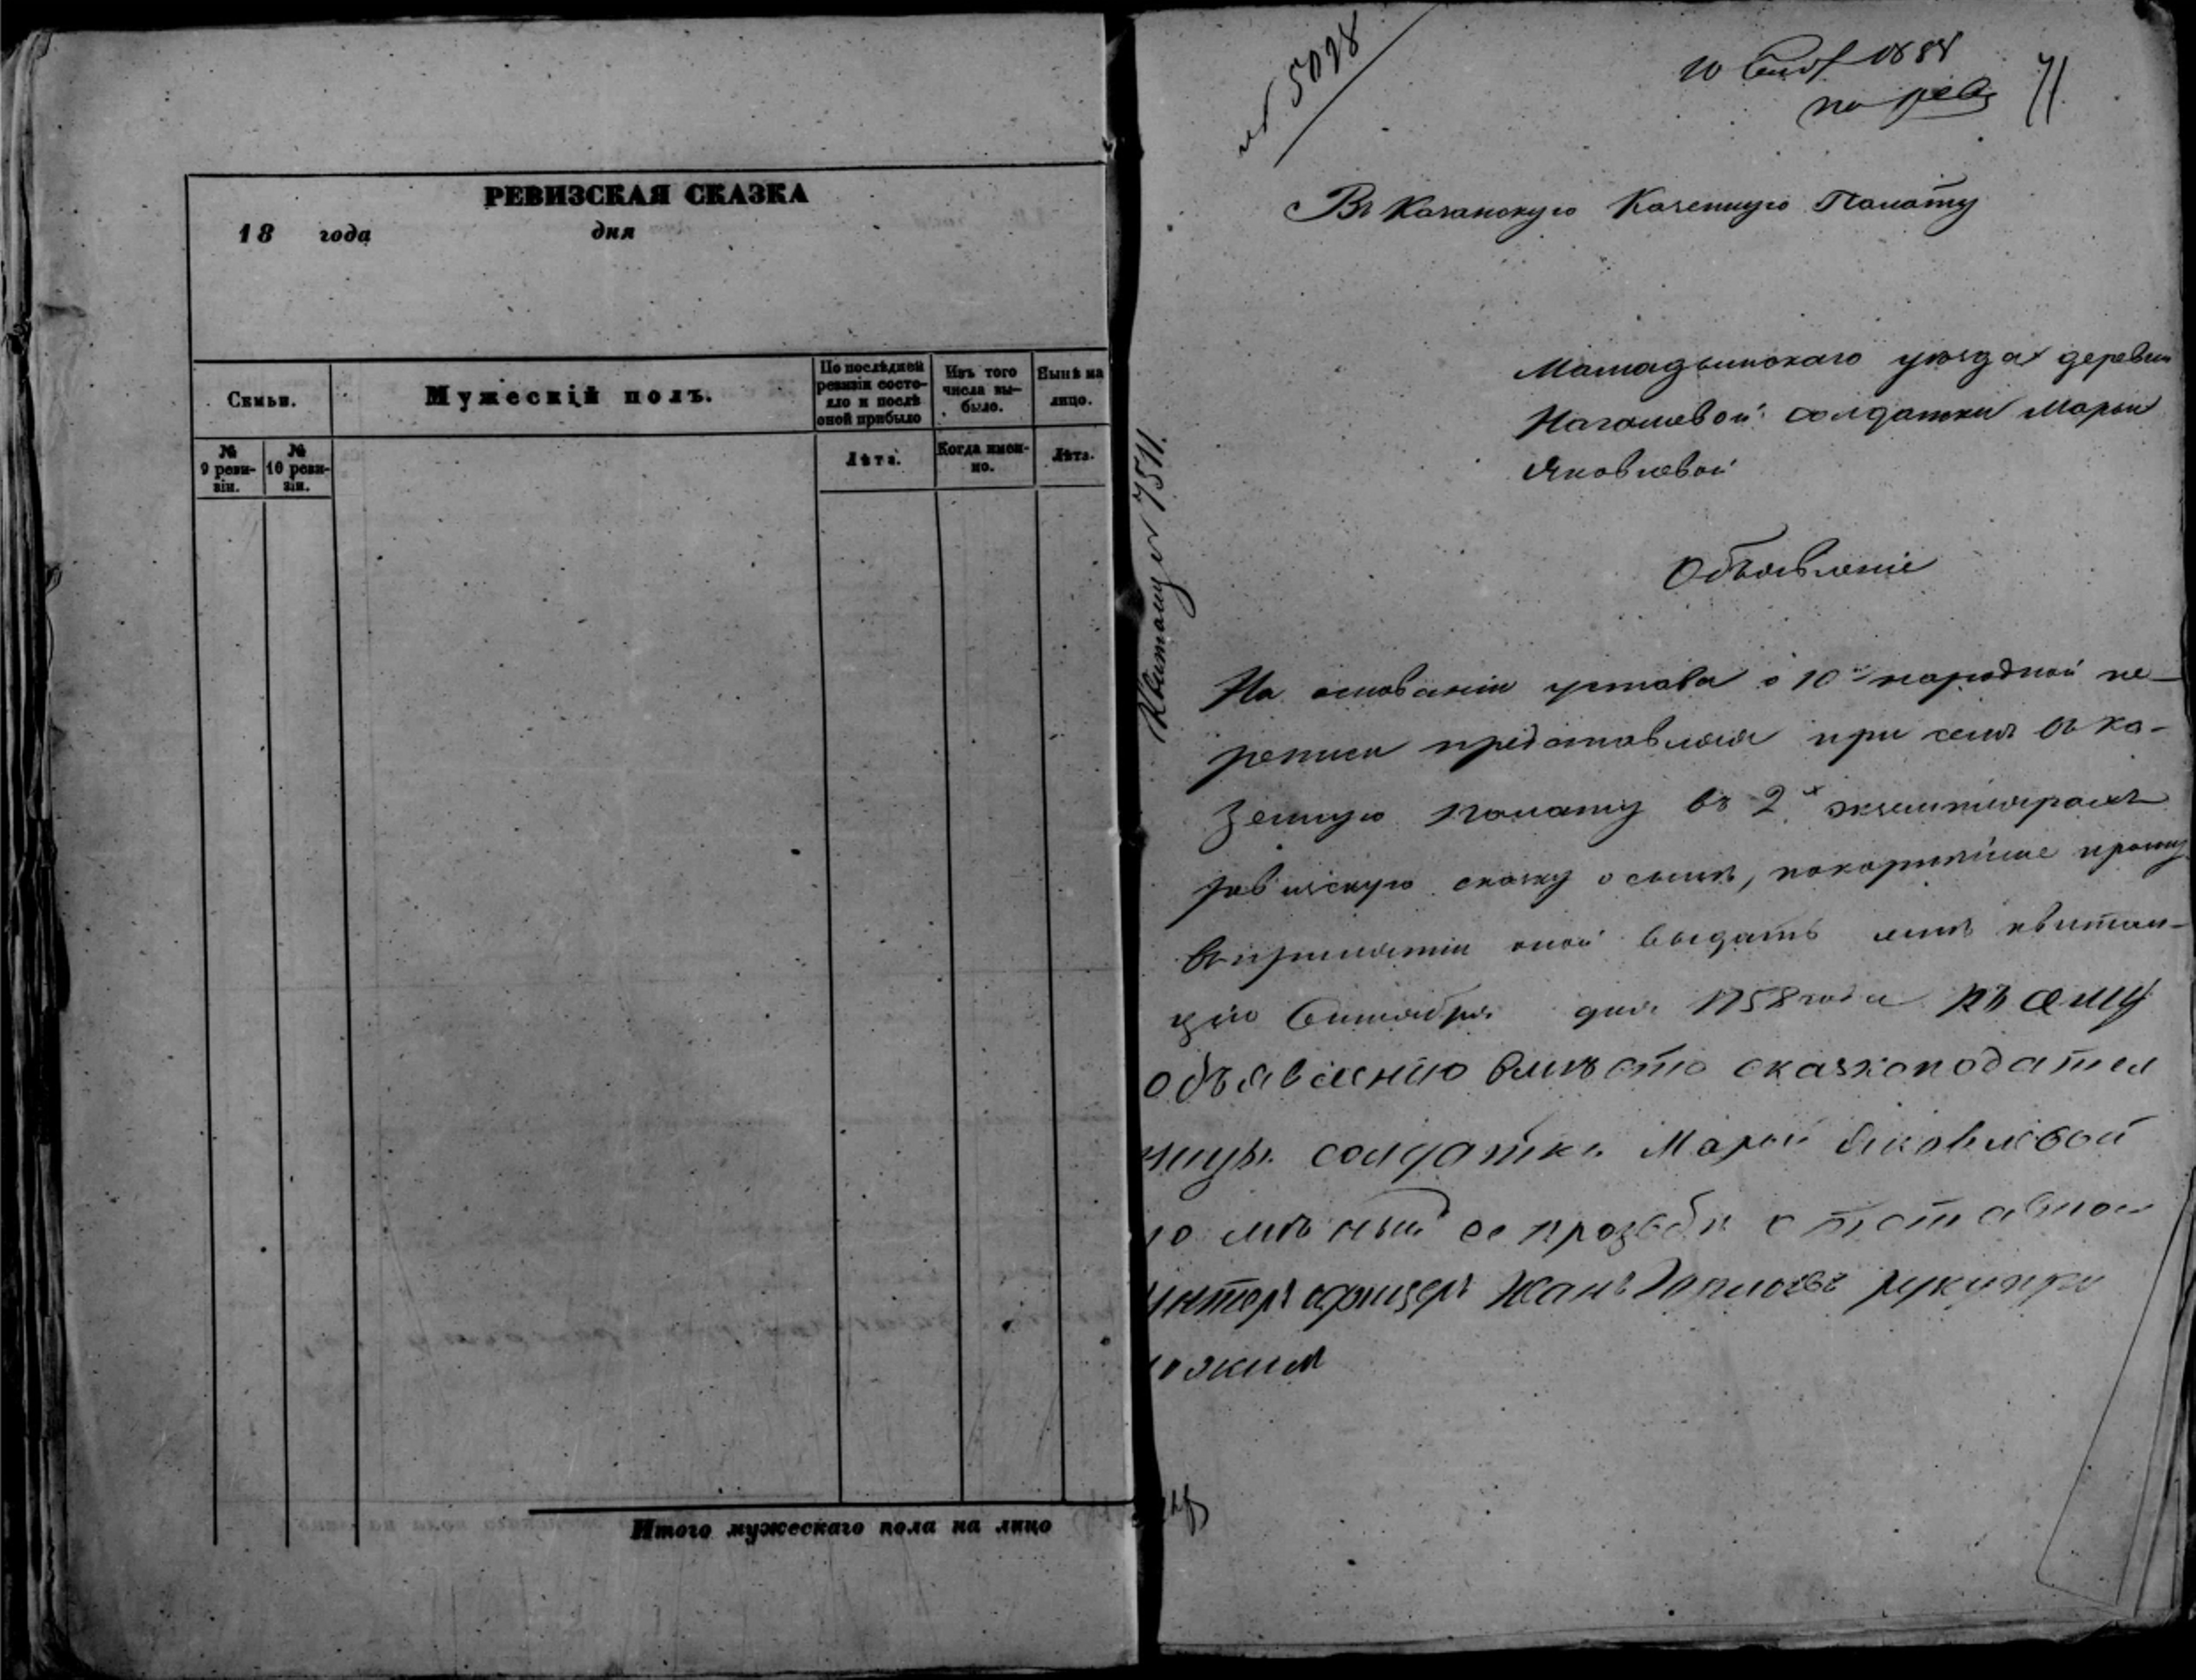 РЕВИЗСКАЯ СКАЗКА
18 года дня
Семьи.
Мужескій полъ.
По послѣдней ревизіи состояло и послѣ оной прибыло
Изъ того числа выбыло.
Нынѣ на лицо.
№ 9 ревизіи.
№ 10 ревизіи.
Лѣта.
Когда именно.
Лѣта.
Итого мужескаго пола на лицо
№ 5098
10 Сент 1858
по рев
71
Въ Казанскую Казенную Палату
Мамадышскаго уѣзда деревни
солдатки Марьи
Яковлевой
Объявленіе
На основаніи устава о 10й народной пе-
реписи представляя при семъ въ ка-
зенную палату въ 2х экземплярахъ
ревизскую сказку о сынѣ, покорнѣйше прошу
въ принятіи оной выдать мнѣ квитан-
цію Сентября дня 1858 года Къ сему
объявленію вмѣсто сказкоподател
ницы солдатки Марьи Яковлевой
по личной ее прозбѣ отставной
унтеръ офицеръ руку при
ложилъ
Квитанц № 7511.